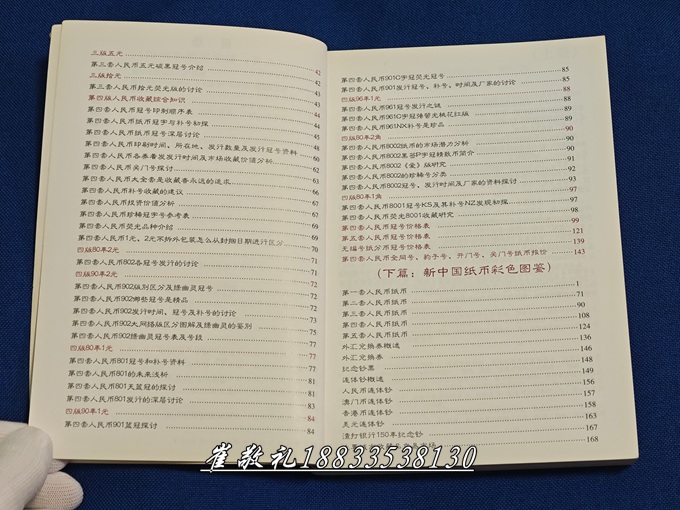 三版五元
第三套人民币五元碳黑冠号介绍 42
三版拾元 42
第三套人民币拾元荧光版的讨论 43
第四版人民币收藏综合知识 43
第四套人民币冠号印刷顺序表 44
第四套人民币纸币冠字与补号初探 44
第四套人民币纸币冠号深层讨论
第四套人民币印刷时间、所在地、发行数量及发行冠号资料
第四套人民币各券着发发行时间及市场收藏价值分析 60
第四套人民币关门号探讨 60
第四套人民币大全套是收藏者永远的追求 63
第四套人民币补号收藏的建议 66
第四套人民币投资价值分析 67
第四套人民币珍稀冠字号参考表 67
第四套人民币荧光品种介绍 69
第四套人民币1元、2元不拆外包装怎么从封捆日期进行区分 69
四版80年2元 70
第四套人民币802各冠号发行的讨论 71
四版90年2元 71
第四套人民币902版别区分及绿幽灵冠号 72
第四套人民币902哪些冠号是精品 72
第四套人民币902发行时间、冠号及补号的讨论 73
第四套人民币902大网络版区分图解及绿幽灵的鉴别 75
第四套人民币902绿幽灵冠号表及号段 75
四版80年1元 77
第四套人民币801冠号和补号资料 77
第四套人民币801的未来浅析 81
第四套人民币801天蓝冠的探讨 81
第四套人民币801发行的深层讨论 83
四版90年1元 84
第四套人民币901蓝冠探讨 84
第四套人民币901C字冠荧光冠号 85
第四套人民币901发行冠号、补号、时间及厂家的讨论 85
四版96年1元 88
第四套人民币961冠号发行之谜 88
第四套人民币961C字冠博誉光桃花红版
第四套人民币961NX补号是珍品
四版80年2角 90
第四套人民币8002纸币的市场潜力分析 90
第四套人民币8002票荟P字冠精致币简介 90
第四套人民币8002《爱》版研究 91
第四套人民币8002的珍稀号分类 92
第四套人民币8002冠号、发行时间及厂家的资料探讨 93
四版80年1角 97
第四套人民币8001冠号KS及其补号NZ发现初探 97
第四套人民币荧光8001收藏研究 98
第四套人民币冠号价格表 99
第五套人民币冠号价格表 121
无编号纸分币冠号价格表 139
第四套人民币全同号、豹子号、开门号、关门号纸币报价 143
(下篇：新中国纸币彩色图鉴)
第一套人民币纸币 1
第二套人民币纸币 71
第三套人民币纸币 90
第四套人民币纸币 108
第五套人民币纸币 124
外汇兑换券概述 136
外汇兑换券 146
纪念钞票 148
连体钞概述 149
人民币连体钞 156
澳门币连体钞 156
香港币连体钞 158
美元连体钞 163
渣打银行150年纪念钞 167
168
崔敬礼18833538130